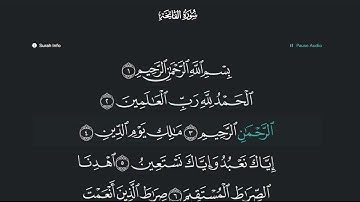 سُورَةُ الفَاتِحَةِ
Surah Info
Pause Audio
بِسْمِ اللَّهِ الرَّحْمَٰنِ الرَّحِيمِ ١
الْحَمْدُ لِلَّهِ رَبِّ الْعَالَمِينَ ٢
الرَّحْمَٰنِ الرَّحِيمِ ٣ مَالِكِ يَوْمِ الدِّينِ ٤
إِيَّاكَ نَعْبُدُ وَإِيَّاكَ نَسْتَعِينُ ٥ اهْدِنَا
الصِّرَاطَ الْمُسْتَقِيمَ ٦ صِرَاطَ الَّذِينَ أَنْعَمْتَ